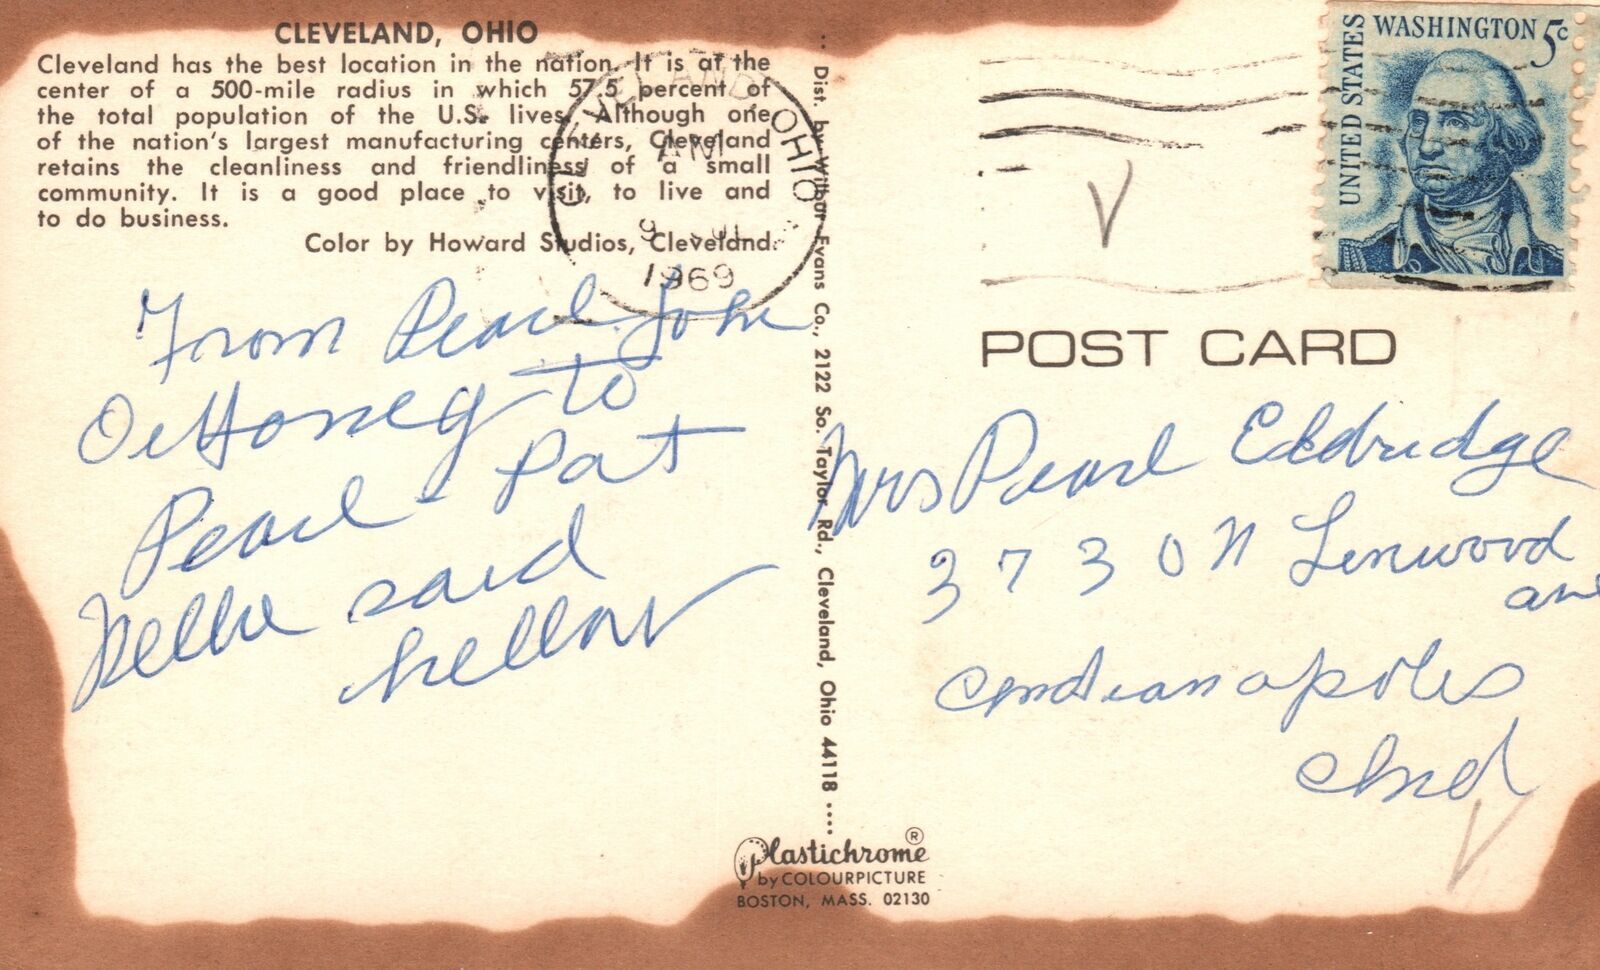 CLEVELAND, OHIO
Cleveland has the best location in the nation. It is at the
center of a 500-mile radius in which 57.5 percent of
the total population of the U.S. lives. Although one
of the nation's largest manufacturing centers, Cleveland
retains the cleanliness and friendliness of a small
community. It is a good place to visit, to live and
to do business.
Color by Howard Studios, Cleveland.
CLEVELAND OHIO
AM
9 JUL
1969
From Pearl John
Honey to
Pearl - Pat
Nellie said
hellow
.. Dist. by Wilbar Evans Co., 2122 So. Taylor Rd., Cleveland, Ohio 44118 ....
Plastichrome®
by COLOURPICTURE
BOSTON, MASS. 02130
UNITED STATES
WASHINGTON 5c
POST CARD
Mrs Pearl Eldridge
3730 N Linwood
ave
Indianapolis
Ind